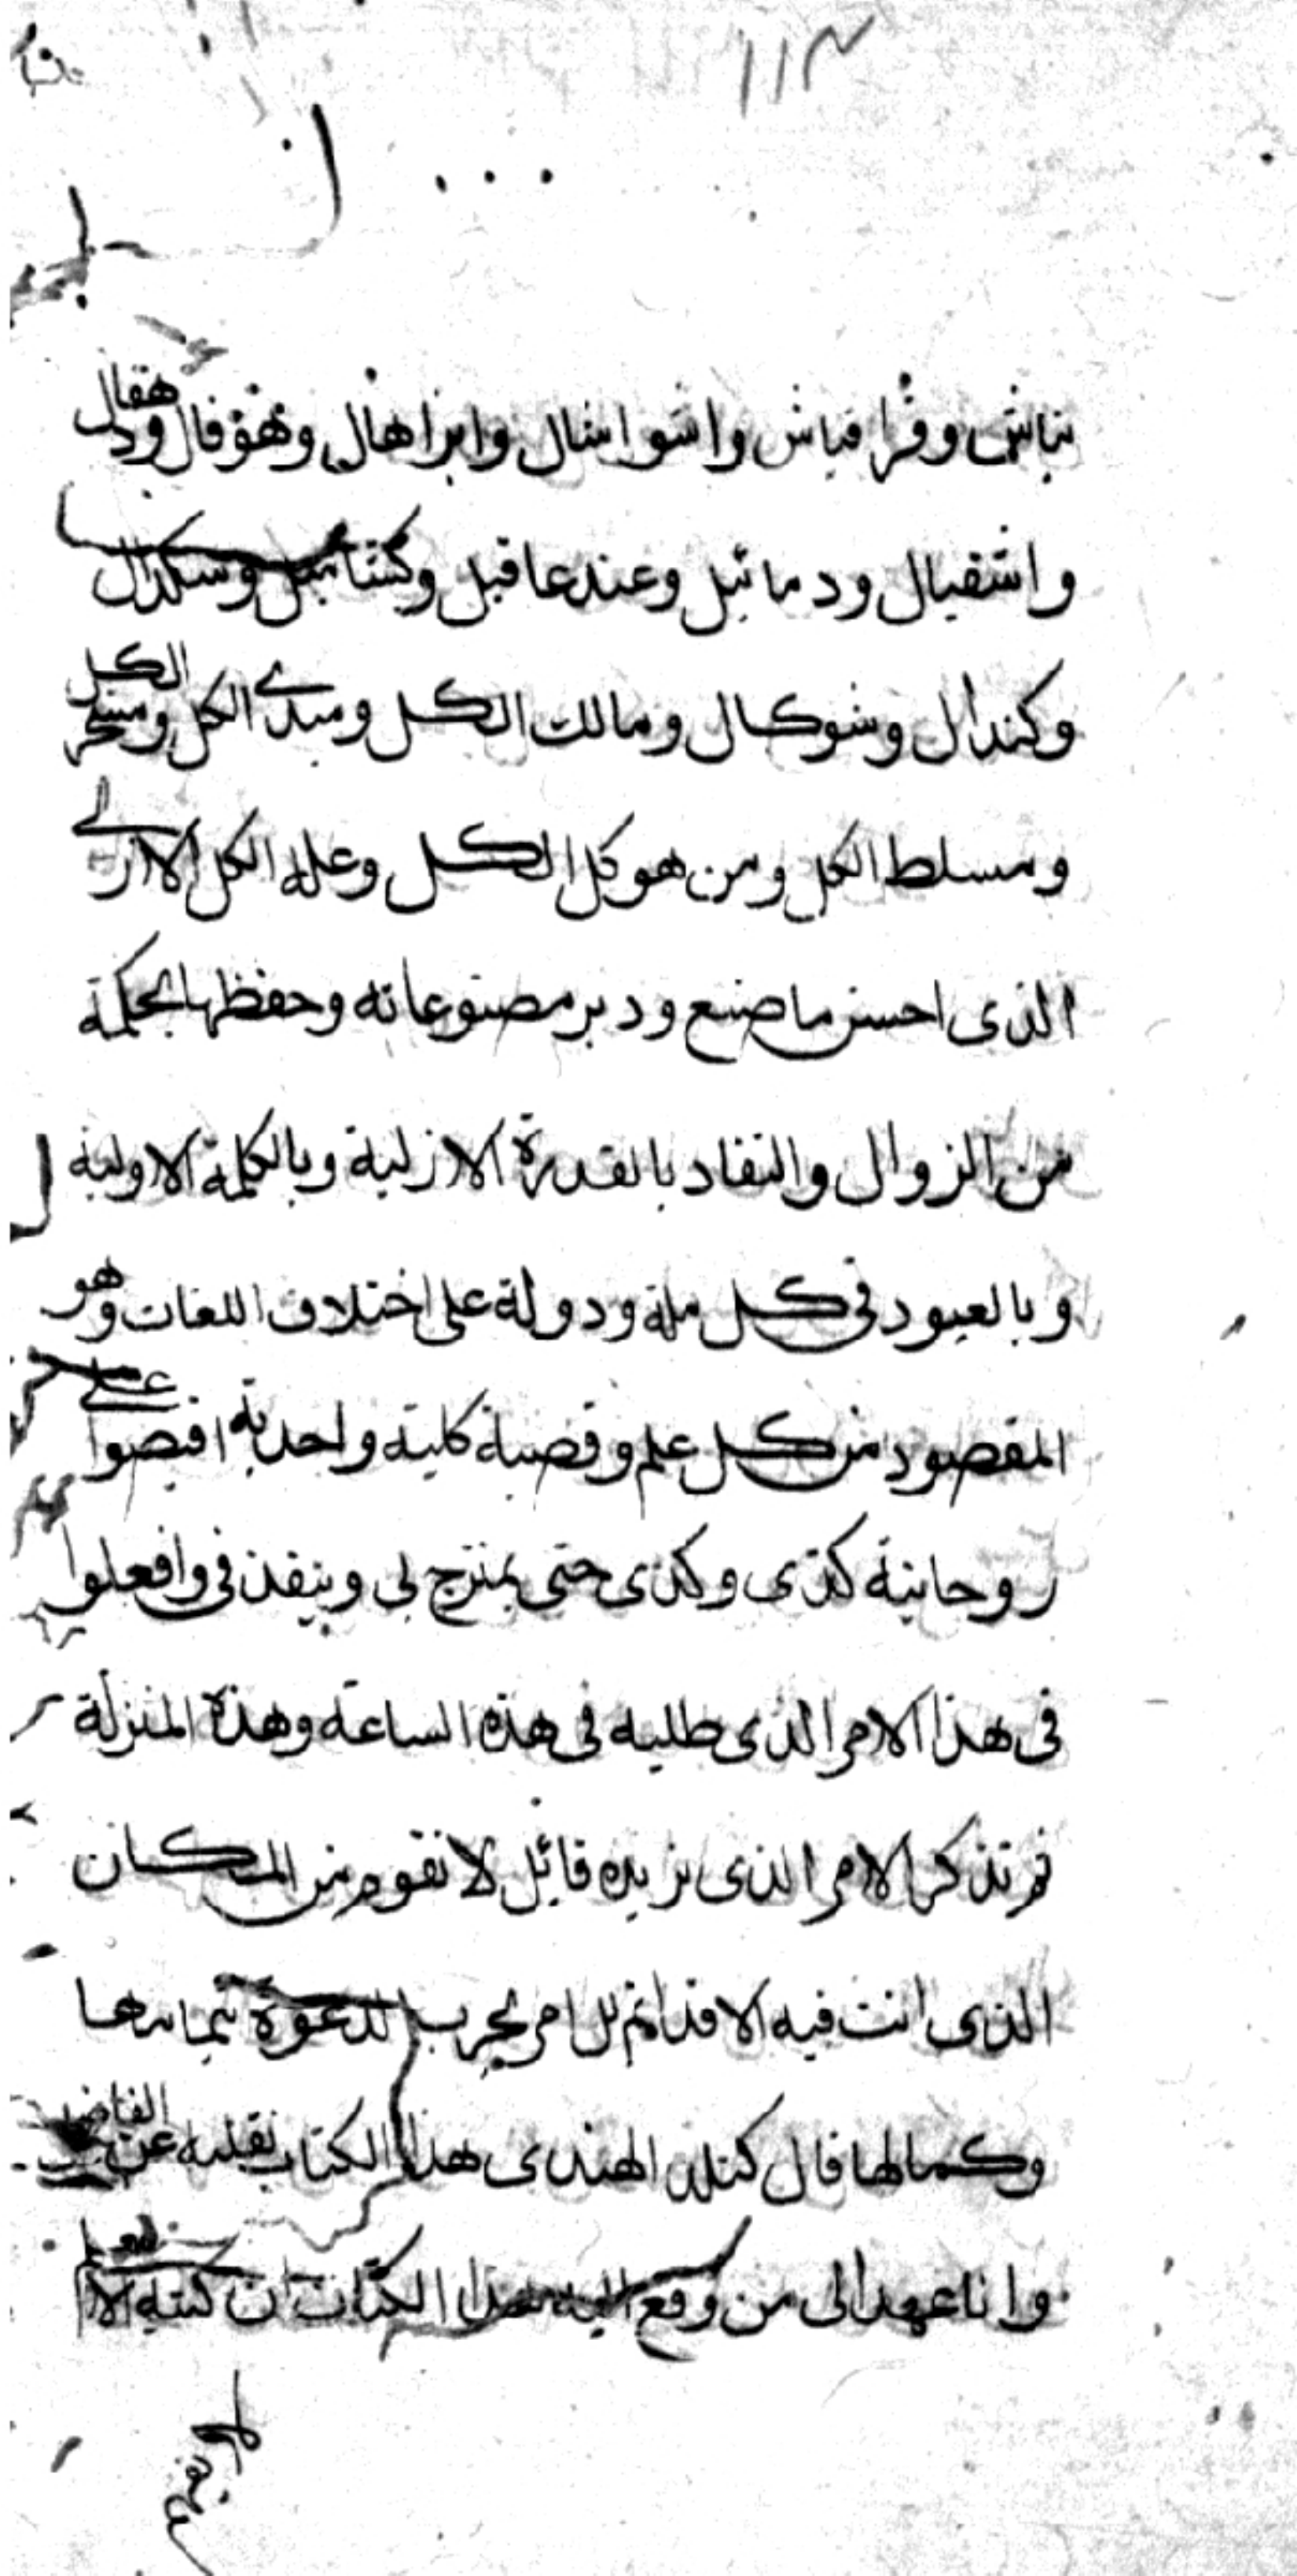 ١١٣
نباش وفرافباش واشواشال وابراهال وهوفال ودهقال
واشقيال ودمائيل وعندعاقيل وكشتاميل وسكدال
وكندال وشوكال ومالك الكل ومبدى الكل ومسخر الكل
ومسلط الكل ومن هو كل الكل وعلة الكل الازلى
الذى احسن ما صنع ودبر مصنوعاته وحفظها بحكمة
من الزوال والنفاد بالقدرة الازلية وبالكلمة الاولية
وبالعبود فى كل ملة ودولة على اختلاف اللغات وهو
المقصود من كل علم وقضية كلية واحدية افيضوا على
روحانية كذى وكذى حتى يمتزج لى وينفذ فى وافعلوا
فى هذا الامر الذى طلبه فى هذه الساعة وهذه المنزلة
ثم تذكر الامر الذى تريده قائل لا تقوم من المكان
الذى انت فيه الا قد اتم لك امر يجرب الدعوة بتمامها
وكمالها قال كنكه الهندى هذا الكتاب نقلته عن
وانا عهد الى من وقع اليه هذا الكتاب ان كتبه الا